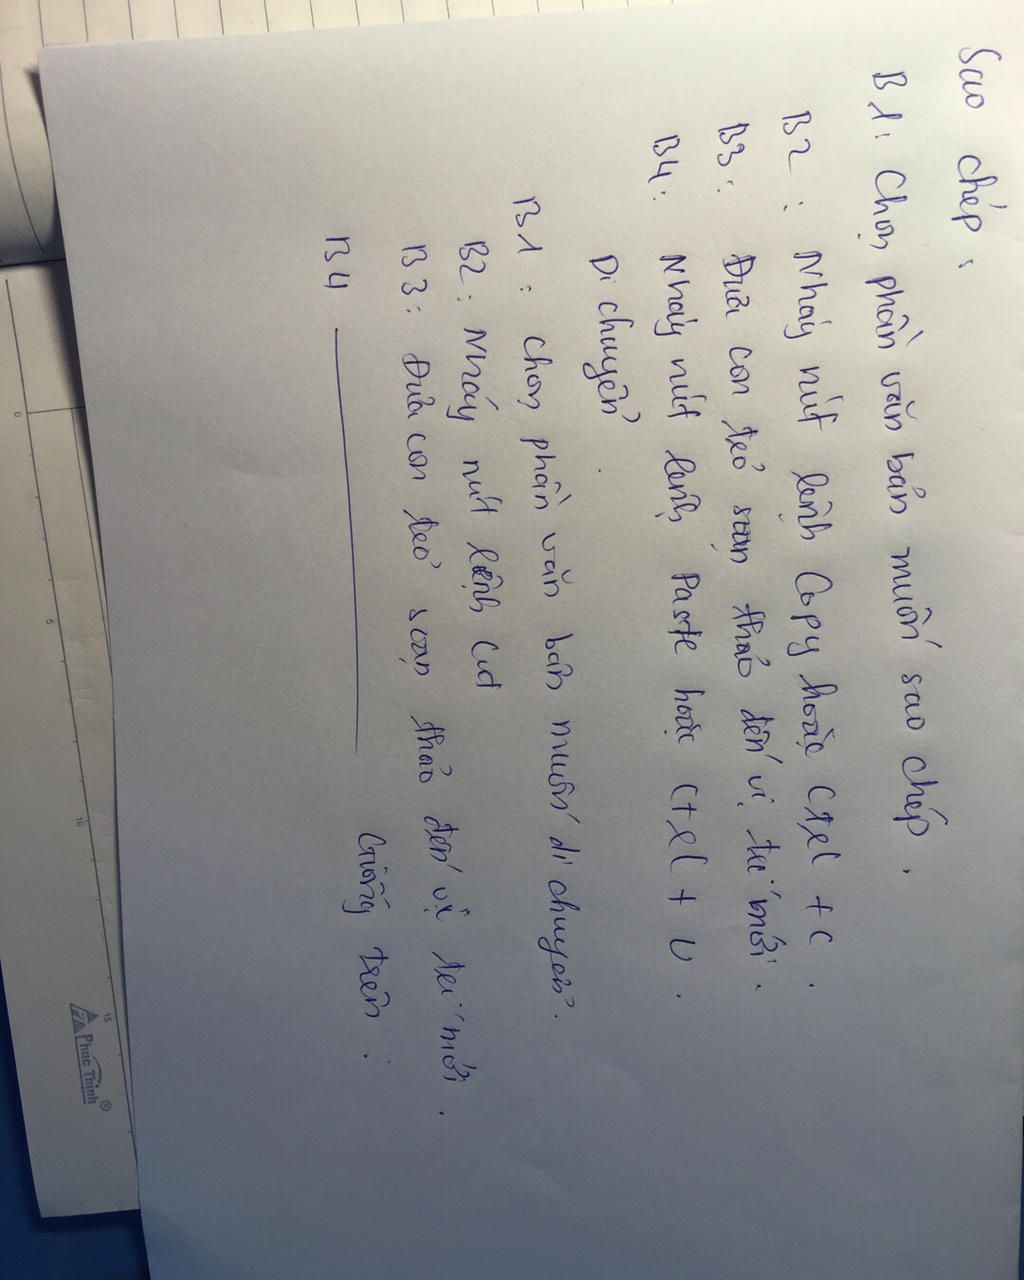 Sao chép :
B1: Chọn phần văn bản muốn sao chép.
B2 : Nháy nút lệnh Copy hoặc Ctrl + C.
B3 : Đưa con trỏ soạn thảo đến vị trí mới.
B4 : Nháy nút lệnh Paste hoặc Ctrl + V.
Di chuyển
B1 : Chọn phần văn bản muốn di chuyển.
B2 : Nháy nút lệnh Cut
B3 : Đưa con trỏ soạn thảo đến vị trí mới.
B4 Giống trên.
0 5 10 15
Phuc Thinh ®